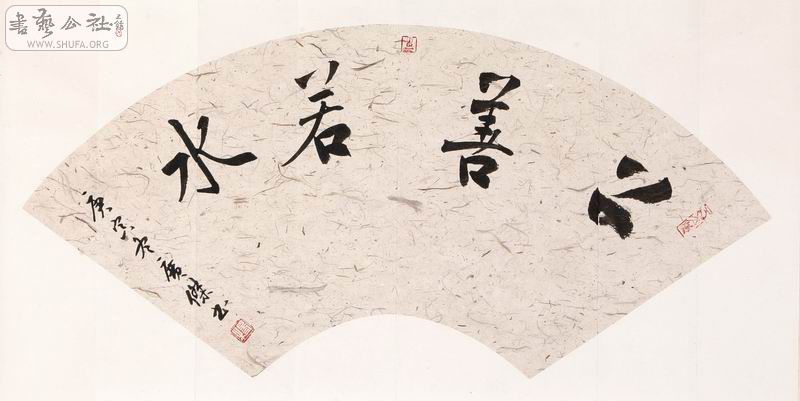 書藝公社
WWW.SHUFA.ORG
上善若水
庚寅冬廣傑书